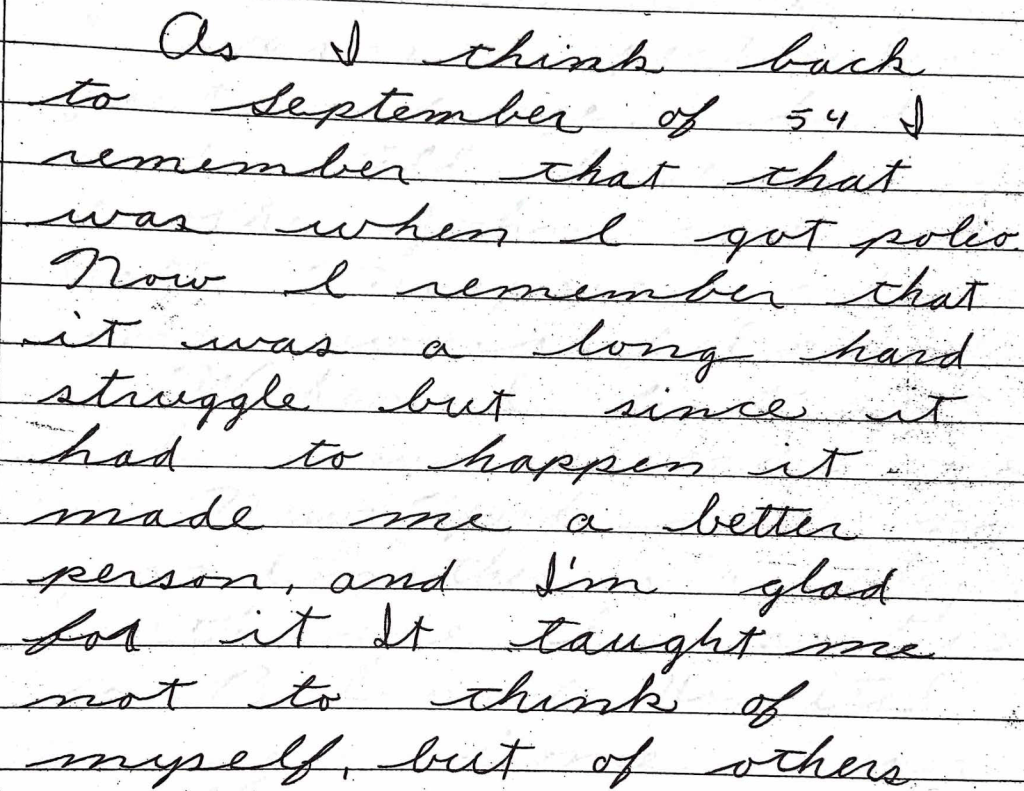 As I think back
to September of 54 I
remember that that
was when I got polio.
Now I remember that
it was a long hard
struggle but since it
had to happen it
made me a better
person, and I'm glad
for it It taught me
not to think of
myself, but of others